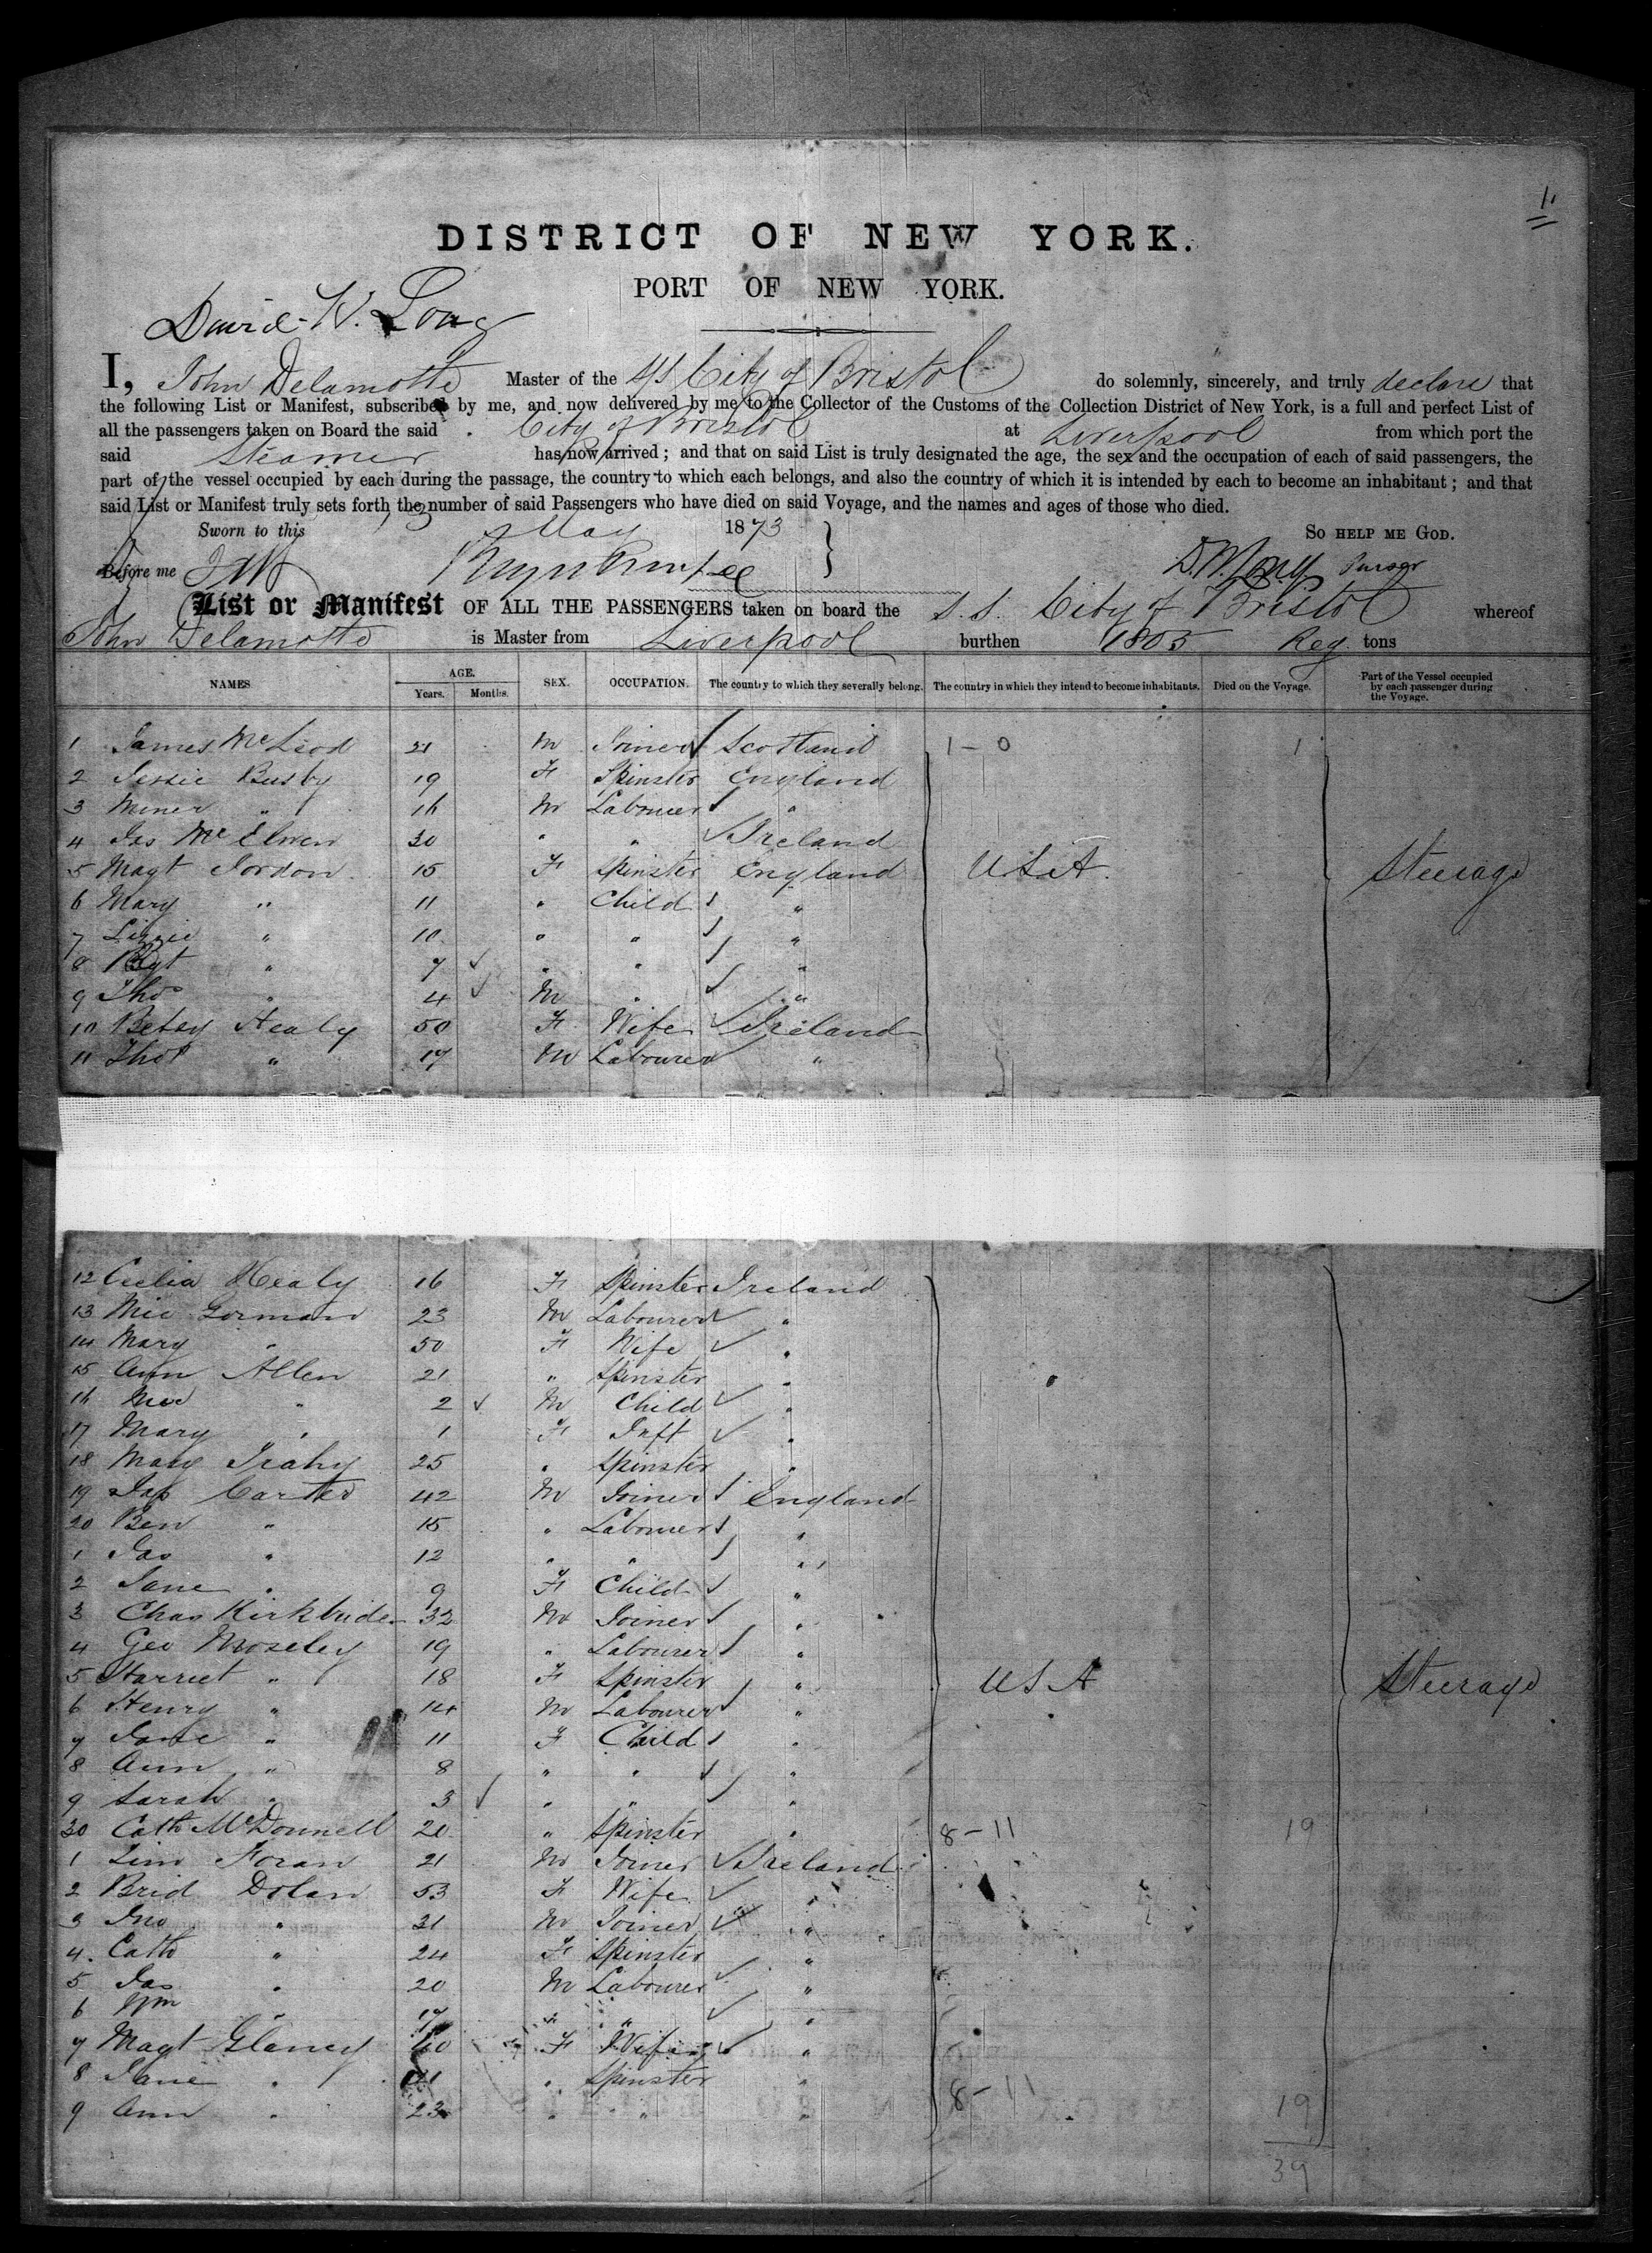 1.
DISTRICT OF NEW YORK.
PORT OF NEW YORK.
David W. Long
I, John Delamotte Master of the SS City of Bristol do solemnly, sincerely, and truly declare that
the following List or Manifest, subscribed by me, and now delivered by me to the Collector of the Customs of the Collection District of New York, is a full and perfect List of
all the passengers taken on Board the said City of Bristol at Liverpool from which port the
said Steamer has now arrived; and that on said List is truly designated the age, the sex and the occupation of each of said passengers, the
part of the vessel occupied by each during the passage, the country to which each belongs, and also the country of which it is intended by each to become an inhabitant; and that
said List or Manifest truly sets forth the number of said Passengers who have died on said Voyage, and the names and ages of those who died.
Sworn to this 13 May 1873 SO HELP ME GOD.
Before me D.W. Long Purser
List or Manifest OF ALL THE PASSENGERS taken on board the S.S. City of Bristol whereof
John Delamotte is Master from Liverpool burthen 1805 Reg. tons
NAMES AGE. Years. Months. SEX. OCCUPATION. The country to which they severally belong. The country in which they intend to become inhabitants. Died on the Voyage. Part of the Vessel occupied by each passenger during the Voyage.
1 James McLeod 21 M Joiner Scotland 1-0 1
2 Jessie Busby 19 F Spinster England
3 Miner " 16 M Labourer "
4 Jas McElwen 30 " " Ireland
5 Magt Jordon 15 F Spinster England USA Steerage
6 Mary " 11 " Child "
7 Lizzie " 10 " " "
8 Bgt " 7 " " "
9 Thos " 4 M " "
10 Betsy Healy 50 F Wife Ireland
11 Thos " 17 M Labourer "
12 Celia Healy 16 F Spinster Ireland
13 Mic Gorman 23 M Labourer "
14 Mary " 50 F Wife "
15 Ann Allen 21 " Spinster "
16 " 2 M Child "
17 Mary " 1 F Inft "
18 Mary 25 " Spinster "
19 Jas Carter 42 M Joiner England
20 Ben " 15 " Labourer "
1 Jas " 12 " " "
2 Jane " 9 F Child "
3 Chas Kirkbride 32 M Joiner "
4 Geo Moseley 19 " Labourer "
5 Harriet " 18 F Spinster " USA Steerage
6 Henry " 14 M Labourer "
7 Jane " 11 F Child "
8 Ann " 8 " " "
9 Sarah " 3 " " "
30 Cath McDonnell 20 " Spinster " 8-11 19
1 Jim Foran 21 M Joiner Ireland
2 Brid Dolan 53 F Wife "
3 Jno " 31 M Joiner "
4 Cath " 24 F Spinster "
5 Jas " 20 M Labourer "
6 Wm " 17 " " "
7 Magt Glancy 60 F Wife "
8 Jane " " Spinster " 8-11
9 Ann " 23 " " " 19
39